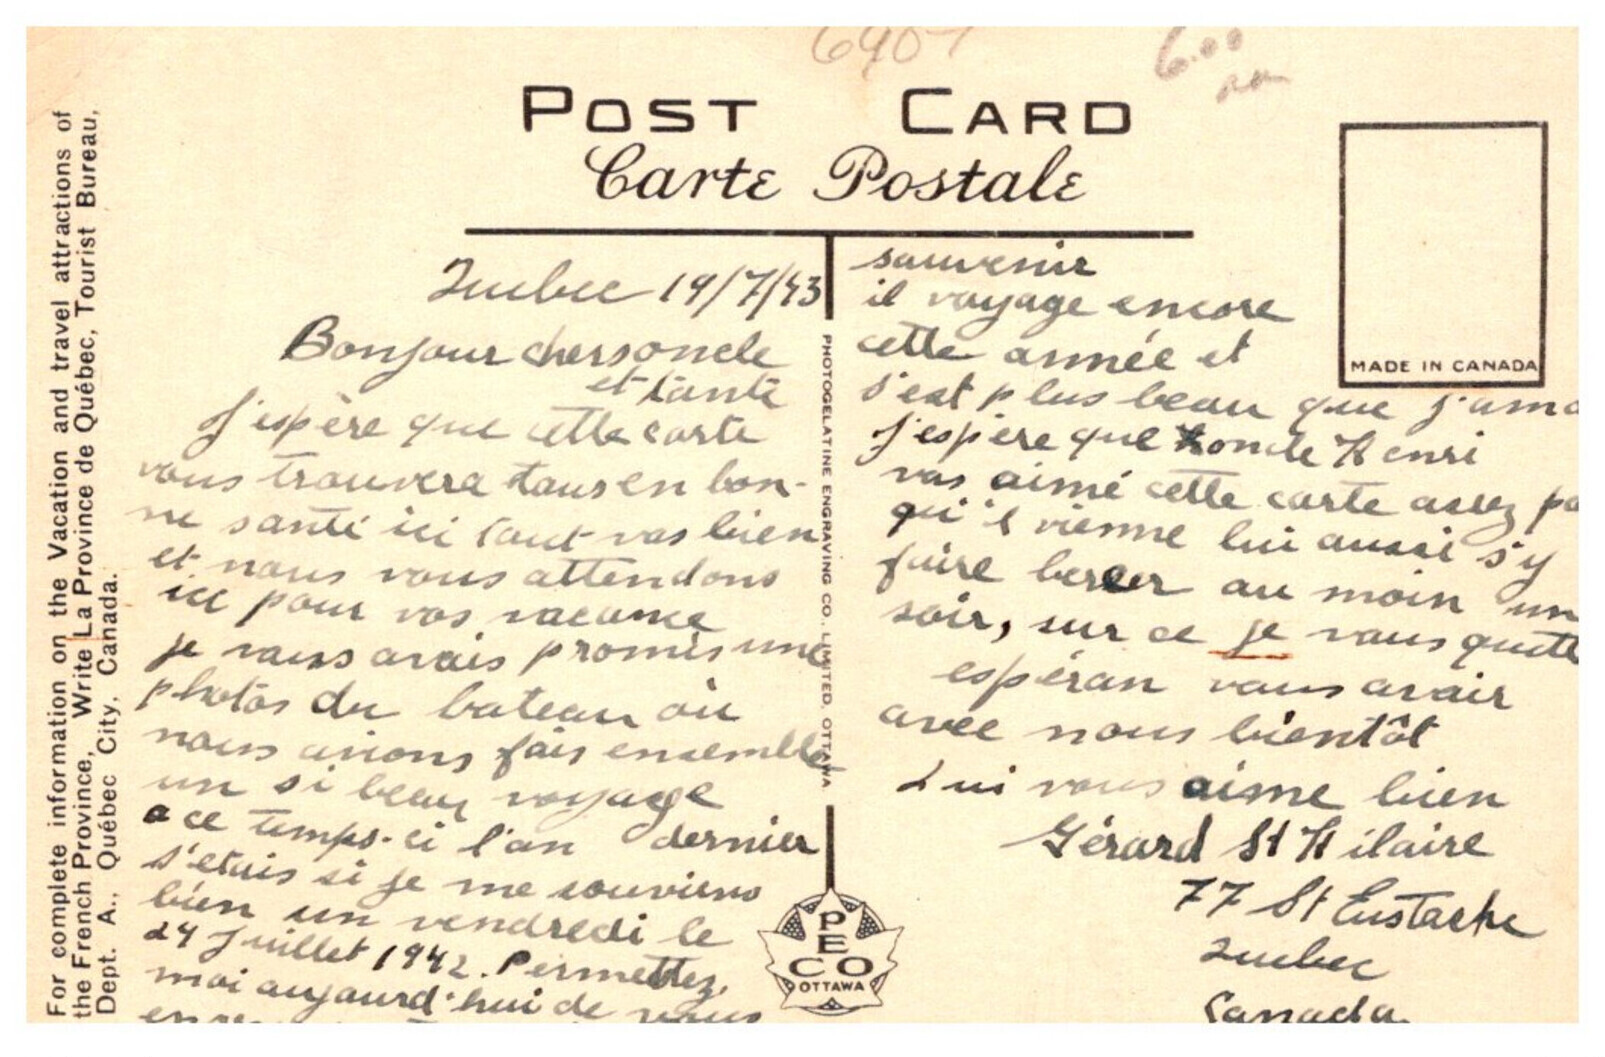 6407
6.00
POST CARD
Carte Postale
MADE IN CANADA
For complete information on the Vacation and travel attractions of
the French Province, Write La Province de Québec, Tourist Bureau,
Dept. A., Québec City, Canada.
Quebec 19/7/43
Bonjour chers oncle
et tante
J'espère que cette carte
vous trouvera tous en bon-
ne santé ici tout vas bien
et nous vous attendons
ici pour vos vacance
je vous avais promis une
photos du bateau où
nous avions fais ensemble
un si beau voyage
a ce temps-ci l'an dernier
s'etais si je me souviens
bien un vendredi le
24 Juillet 1942. Permettez,
moi aujourd'hui de vous
PHOTOGELATINE ENGRAVING CO. LIMITED, OTTAWA
PECO
OTTAWA
souvenir
il voyage encore
cette année et
s'est plus beau que jama
j'espère que oncle Henri
vas aimé cette carte assez po
qu'il vienne lui aussi s'y
faire bercer au moin un
soir, sur ce je vous quitte
espéran vous avair
avec nous bientôt
Qui vous aime bien
Gérard St Hilaire
77 St Eustache
Quebec
Canada